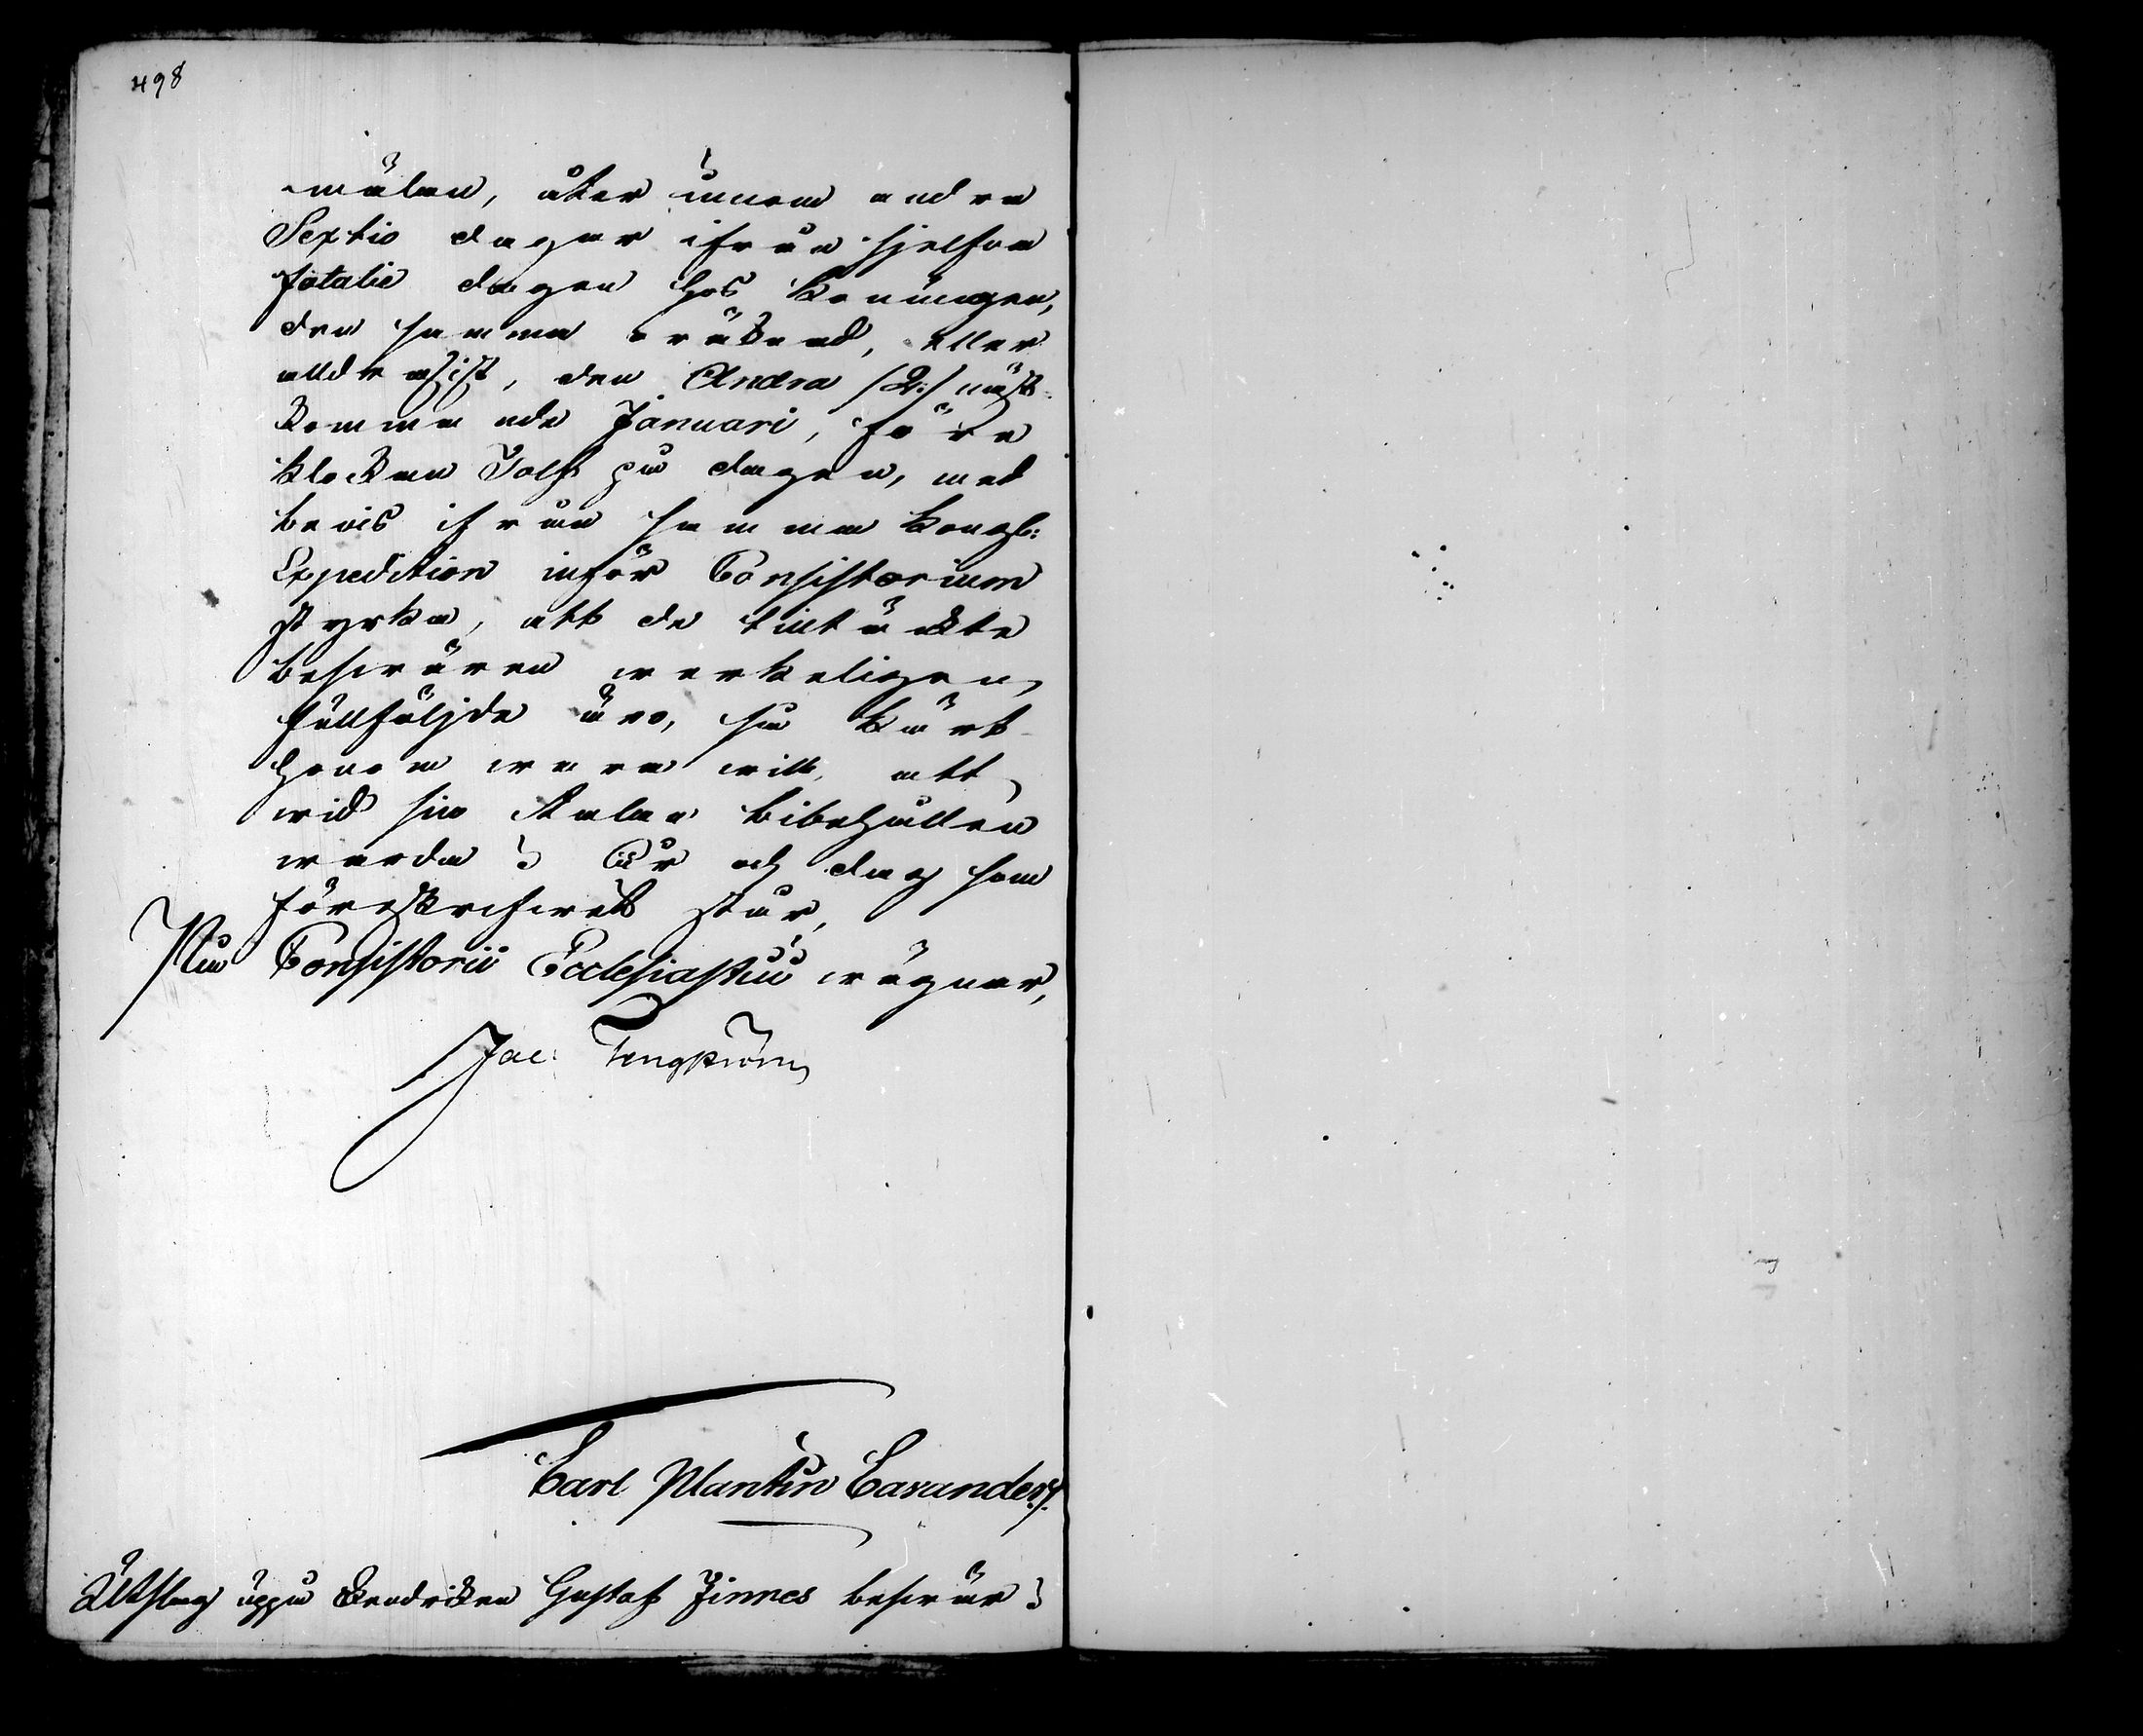 498
-mälen, åter innom andra
Sextio dagar ifrån sjelfva
fatalie dagen hos Konungen,
den samma oräknad, eller
alldrasist, den Andra /2:/ näst-
kommande Januari, före
klockan Tolf på dagen, med
bevis ifrån samma Kongl:
Expedition inför Consistorium
styrka, att de tilltänkte
beswären werkeligen
fullföljde äro, så kärt
honom wara will, att
wid sin talan bibehållen
warda; År och dag som
föreskrifwet står,
På Consistorii Ecclesiastici wägnar,
Jac: Tengström
Carl Plantin Cavander
Utslag uppå Gustaf Finnes beswär;